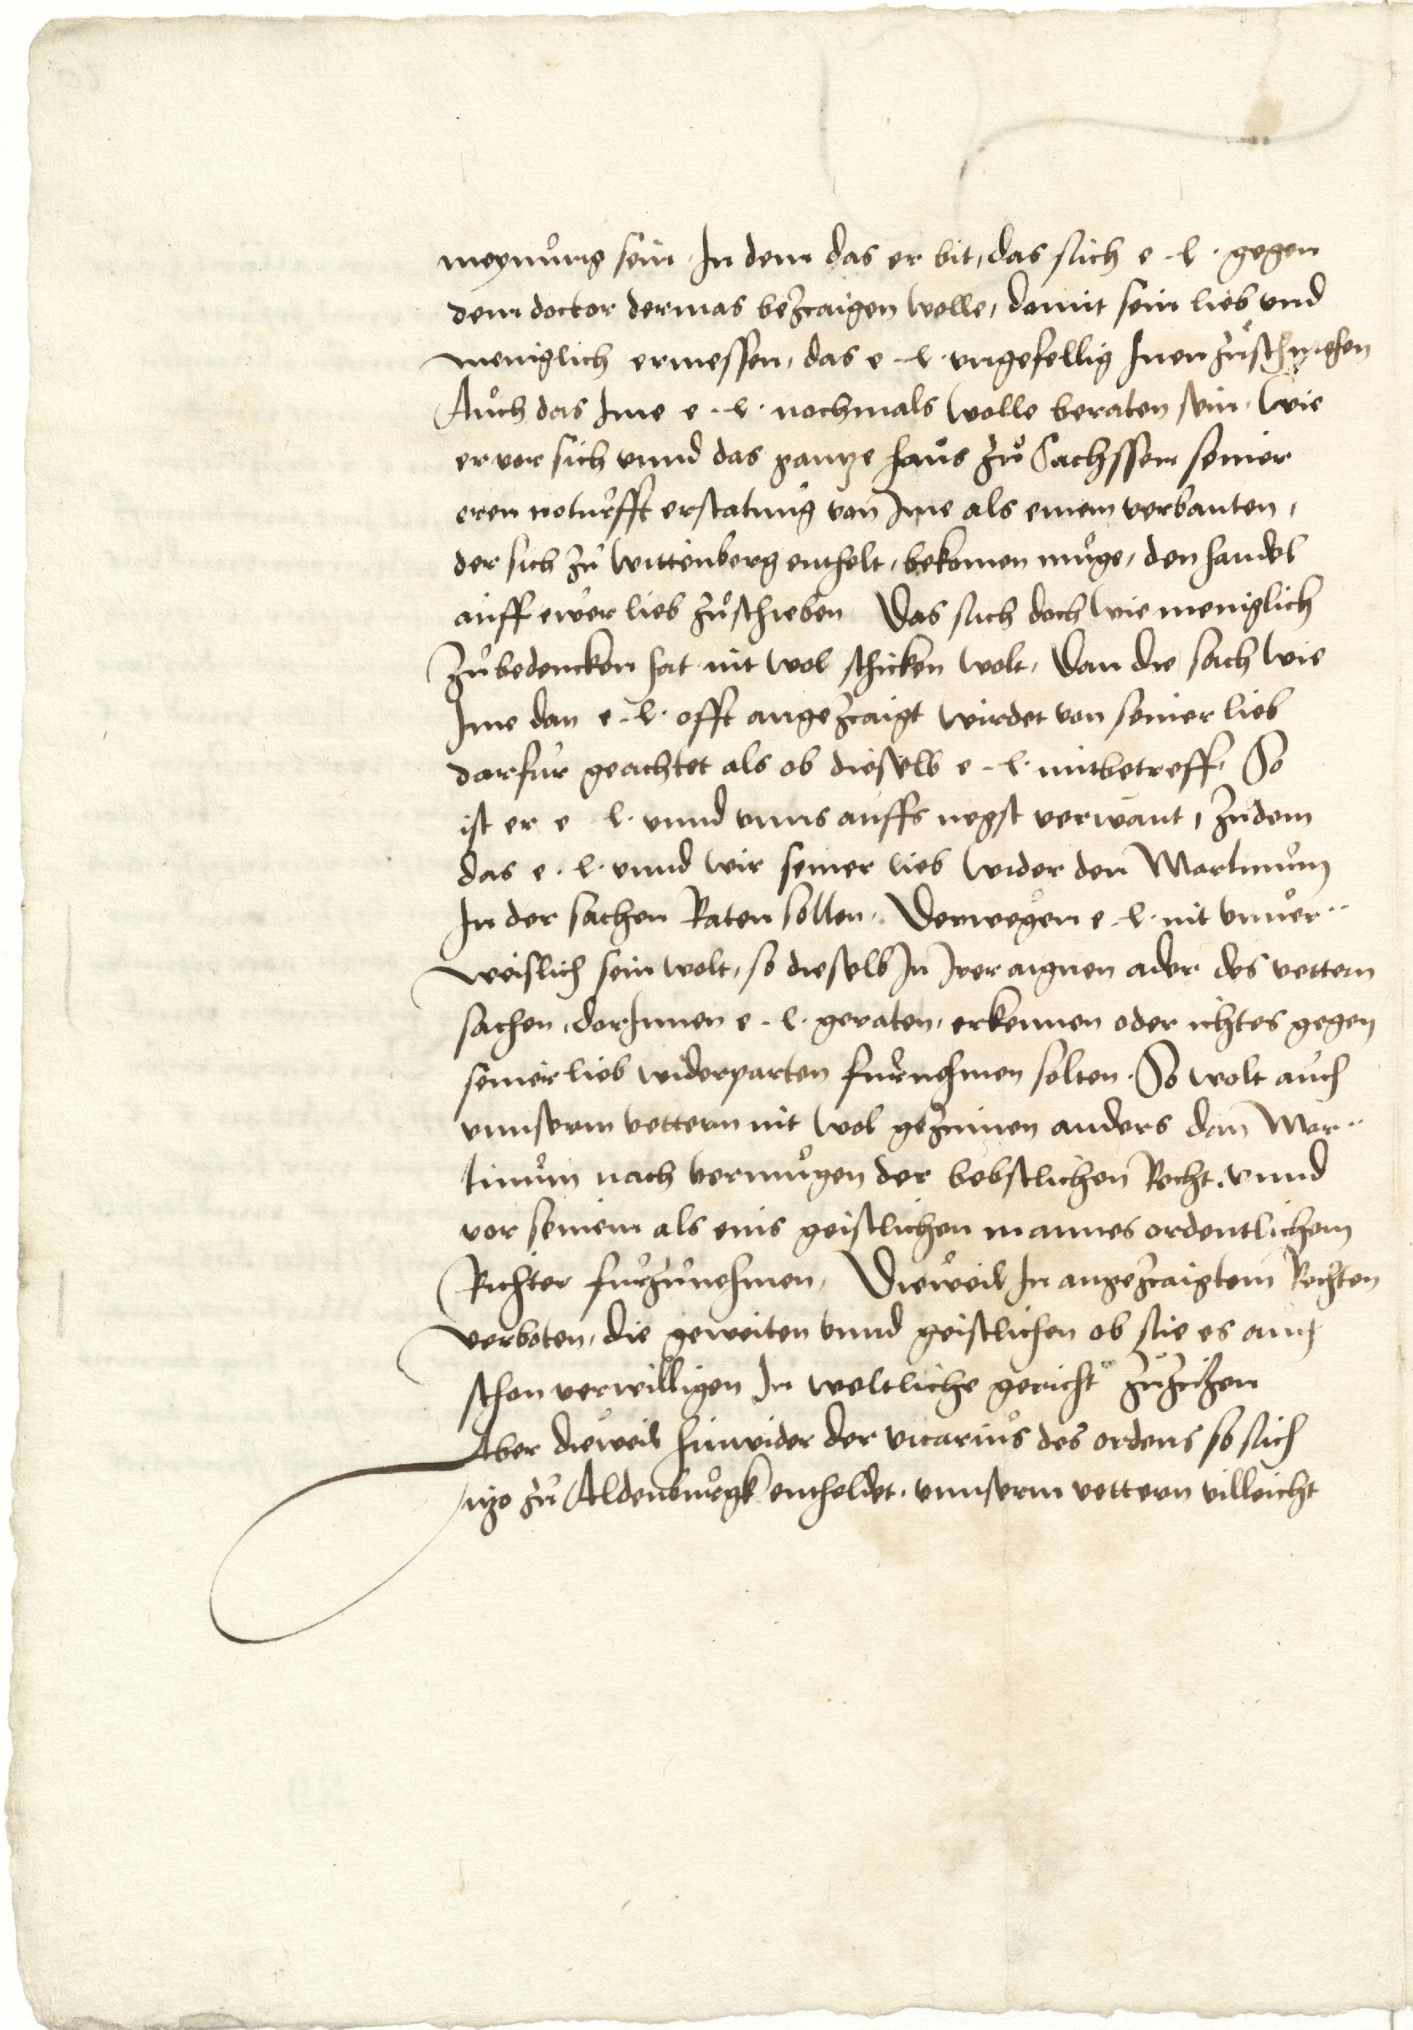 meynuͦng sein. In dem das er bit, das sich e. l. gegen
dem doctor dermas bezcaigen wolle, domit sein lieb vnd
meniglich ermessen, das e. l. vngefellig Inen zuͦschmehen
Auͦch das Ime e. l. nochmals wolle beraten sein, wie
er vor sich vnnd das gantze haus zuͦ Sachssen seiner
eren noturfft erstatung von Ime als einem verbanten,
der sich zuͦ Wittenberg enthelt, bekomen muͦge, den handel
auff ewer lieb zuͦschieben Das sich doch wie meniglich
Zuͦbedencken hat nit wol schicken wolt, Dan die sach wie
Ime dan e. l. offt angezcaigt wirdet von seiner lieb
darfur geachtet als ob dieselb e. l. mitbetreff, So
ist er e l. vnnd vnns auffs negst verwant, zudem
das e. l. vnnd wir seiner lieb wider den Martinuͦm
In der sachen Raten sollen, Derwegen e. l. nit vnuͦer¨
weislich sein wolt, so dieselb In Irer aignen ader des vettern
sachen, dorInnen e. l. geraten, erkennen oder ichtes gegen
seiner lieb widerparten furnehmen solten. So wolt auch
vnnserm vettern nit wol gezimen anders dan Mar¨
tinuͦm nach vermuͦgen der bebstlichen Recht, vnnd
vor seinem als eins geistlichen mannes ordentlichem
Richter furzuͦnehmen, Dieweil In angezcaigtem Rechten
verboten, die geweiten vnnd geistlichen ob sie es auch
schon verwilligen In weltliche gericht zuͦzihen
Aber dieweil hinwider der vicarius des ordens so sich
itzo zuͦ Aldenbuͦrgk entheldet, vnnserm vettern villeicht